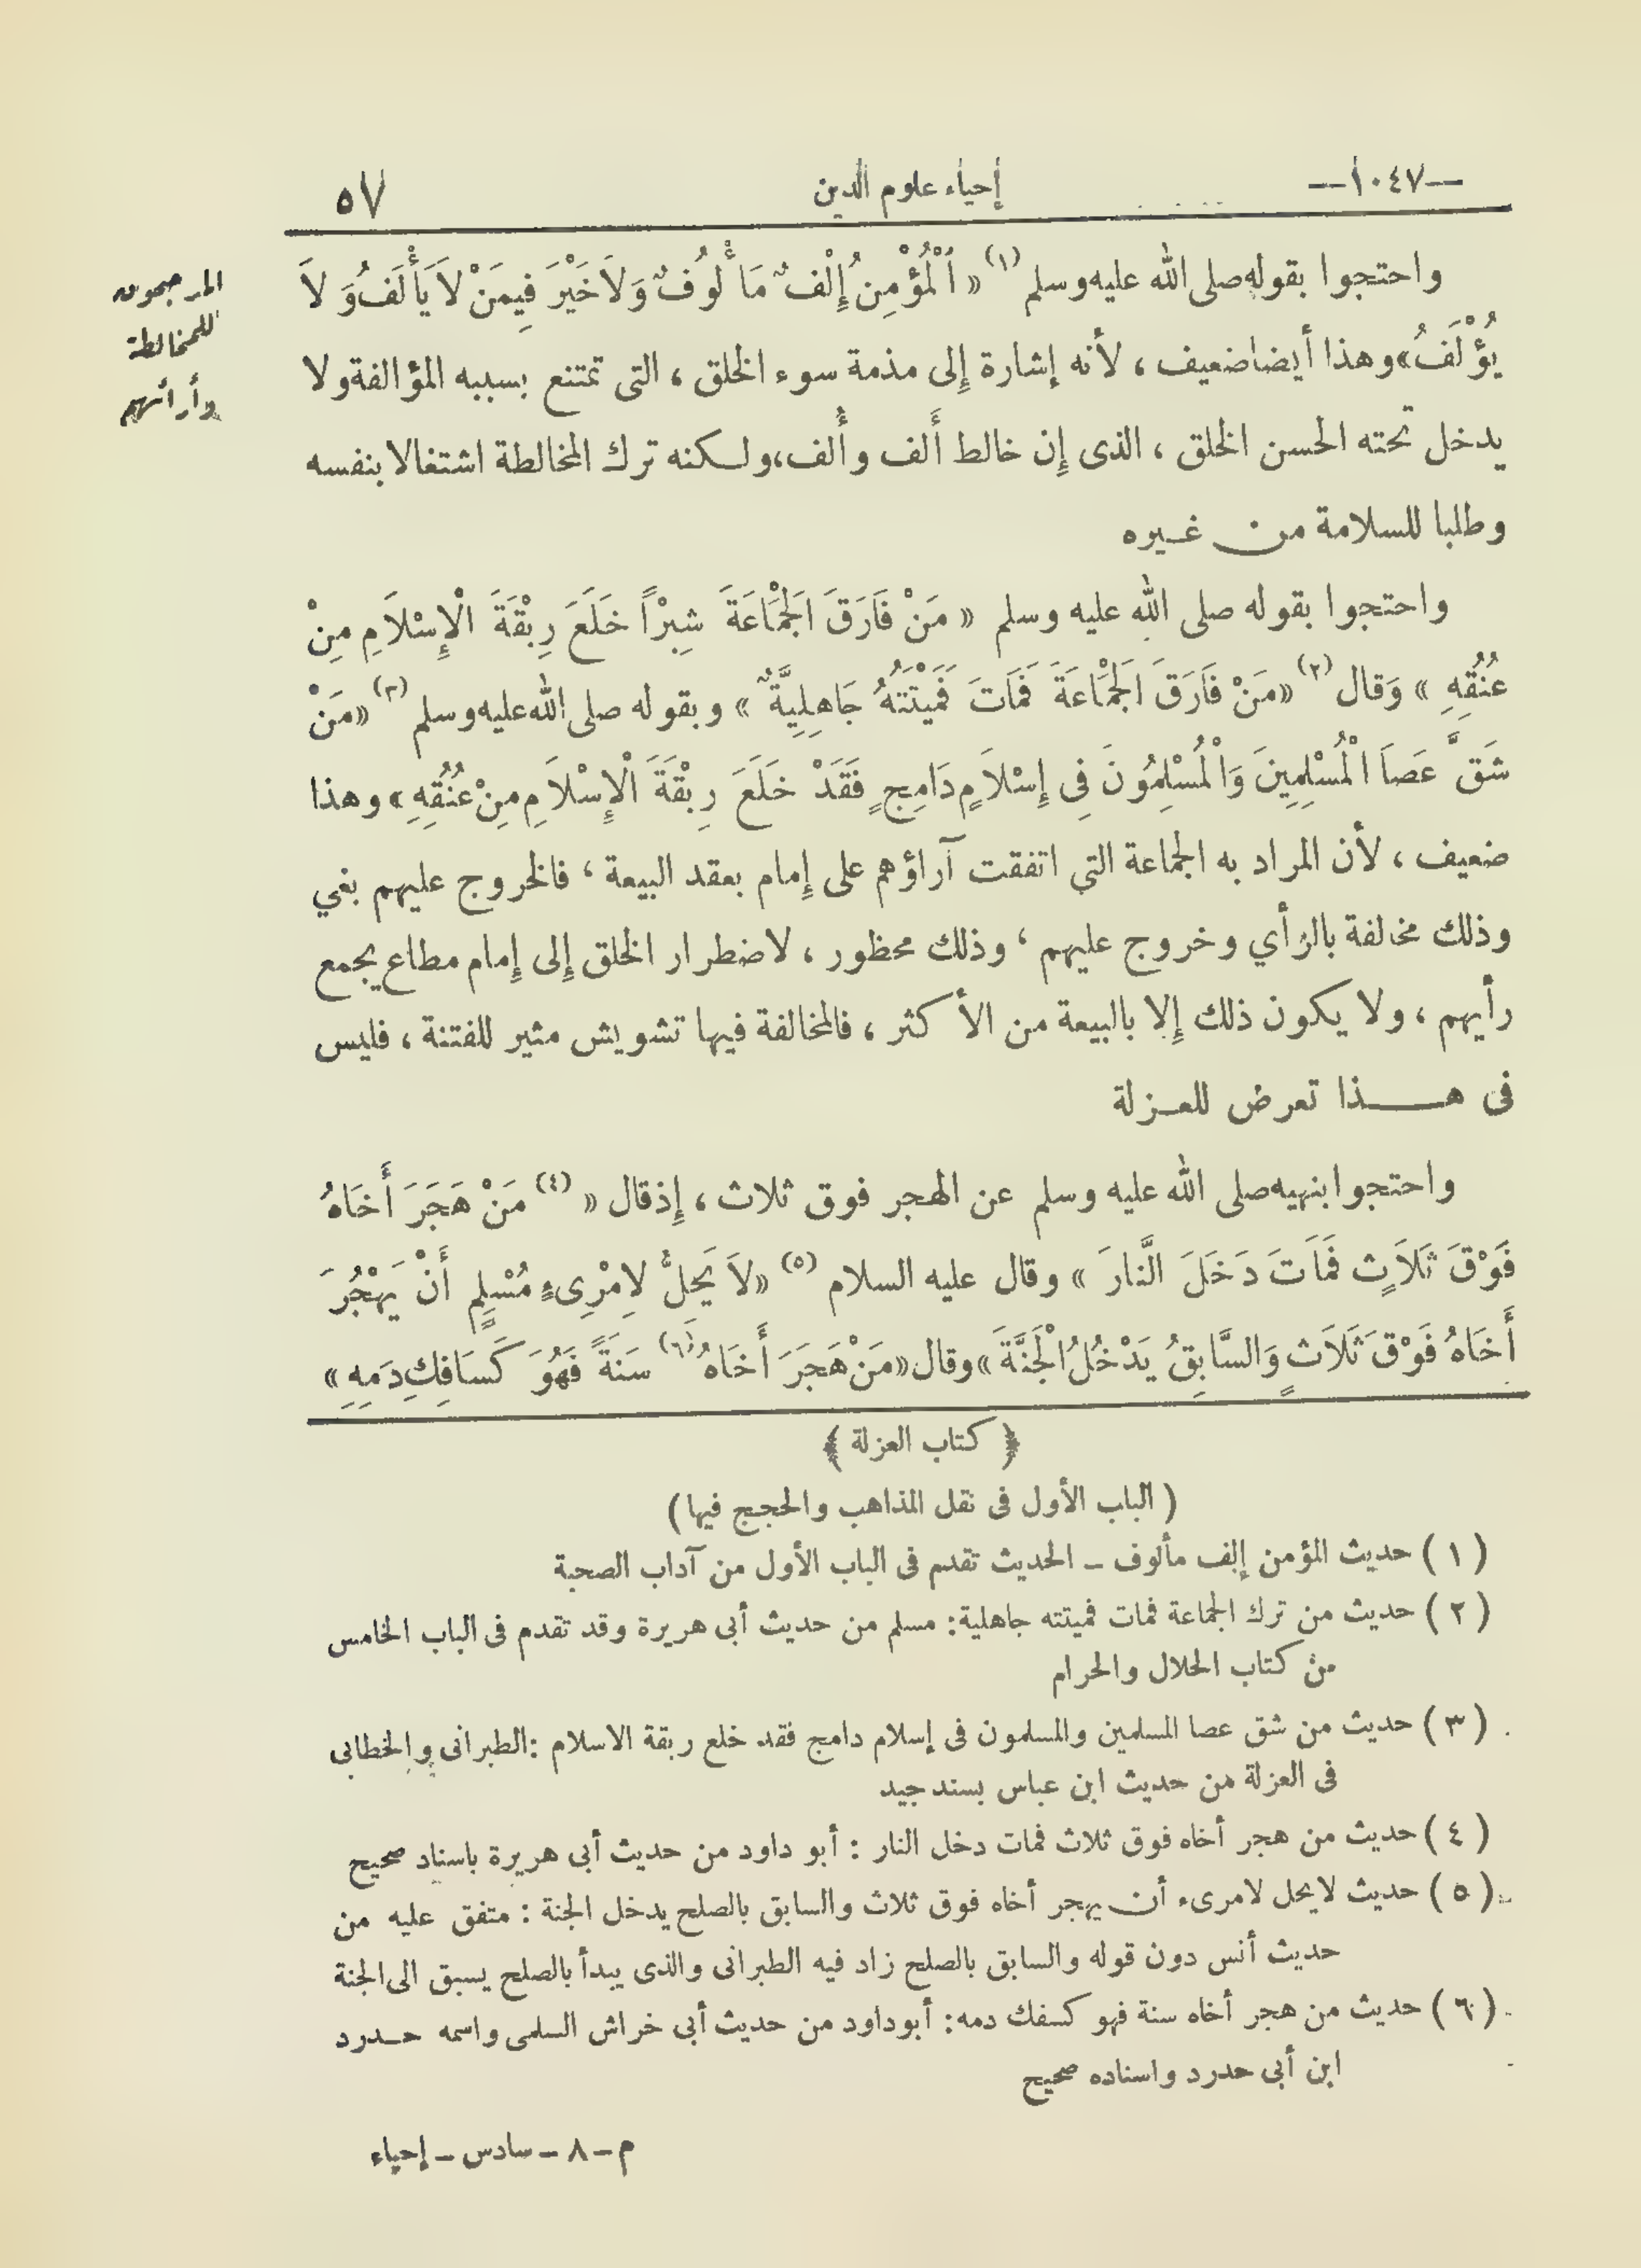 —١٠٤٧— إحياء علوم الدين ٥٧
المرجحون
للمخالطة
وأرائهم
واحتجوا بقوله صلى الله عليه وسلم (١) « اَلْمُؤْمِنُ إِلْفٌ مَأْلُوفٌ وَلاَ خَيْرَ فِيمَنْ لاَ يَأْلَفُ وَلاَ
يُؤْلَفُ » وهذا أيضا ضعيف ، لأنه إشارة إلى مذمة سوء الخلق ، التى تمتنع بسببه المؤالفة ولا
يدخل تحته الحسن الخلق ، الذى إن خالط أَلف وأُلف ، ولكنه ترك المخالطة اشتغالا بنفسه
وطلبا للسلامة من غيره
واحتجوا بقوله صلى الله عليه وسلم « مَنْ فَارَقَ اَلْجَمَاعَةَ شِبْراً خَلَعَ رِبْقَةَ الْإِسْلاَمِ مِنْ
عُنُقِهِ » وَقال (٢) « مَنْ فَارَقَ اَلْجَمَاعَةَ فَمَاتَ فَمِيْتَتُهُ جَاهِلِيَّةٌ » وبقوله صلى الله عليه وسلم (٣) « مَنْ
شَقَّ عَصَا الْمُسْلِمِينَ وَالْمُسْلِمُونَ فِى إِسْلاَمٍ دَامِجٍ فَقَدْ خَلَعَ رِبْقَةَ الْإِسْلاَمِ مِنْ عُنُقِهِ » وهذا
ضعيف ، لأن المراد به الجماعة التي اتفقت آراؤهم على إمام بعقد البيعة ، فالخروج عليهم بغي
وذلك مخالفة بالرأي وخروج عليهم ، وذلك محظور ، لاضطرار الخلق إلى إمام مطاع يجمع
رأيهم ، ولا يكون ذلك إلا بالبيعة من الأكثر ، فالمخالفة فيها تشويش مثير للفتنة ، فليس
فى هـــذا تعرض للعزلة
واحتجوا بنهيه صلى الله عليه وسلم عن الهجر فوق ثلاث ، إذ قال « (٤) مَنْ هَجَرَ أَخَاهُ
فَوْقَ ثَلاَثٍ فَمَاتَ دَخَلَ النَّارَ » وقال عليه السلام (٥) « لاَ يَحِلُّ لِامْرِىءٍ مُسْلِمٍ أَنْ يَهْجُرَ
أَخَاهُ فَوْقَ ثَلاَثٍ وَالسَّابِقُ يَدْخُلُ الْجَنَّةَ » وقال « مَنْ هَجَرَ أَخَاهُ (٦) سَنَةً فَهُوَ كَسَافِكِ دَمِهِ »
﴿ كتاب العزلة ﴾
( الباب الأول فى نقل المذاهب والحجج فيها )
( ١ ) حديث المؤمن إلف مألوف ـ الحديث تقدم فى الباب الأول من آداب الصحبة
( ٢ ) حديث من ترك الجماعة فمات فميتته جاهلية : مسلم من حديث أبى هريرة وقد تقدم فى الباب الخامس
من كتاب الحلال والحرام
( ٣ ) حديث من شق عصا المسلمين والمسلمون فى إسلام دامج فقد خلع ربقة الاسلام : الطبرانى والخطابى
فى العزلة من حديث ابن عباس بسند جيد
( ٤ ) حديث من هجر أخاه فوق ثلاث فمات دخل النار : أبو داود من حديث أبى هريرة باسناد صحيح
( ٥ ) حديث لايحل لامرىء أن يهجر أخاه فوق ثلاث والسابق بالصلح يدخل الجنة : متفق عليه من
حديث أنس دون قوله والسابق بالصلح زاد فيه الطبرانى والذى يبدأ بالصلح يسبق الى الجنة
( ٦ ) حديث من هجر أخاه سنة فهو كسفك دمه : أبو داود من حديث أبى خراش السلمى واسمه حدرد
ابن أبى حدرد واسناده صحيح
م ـ ٨ ـ سادس ـ إحياء